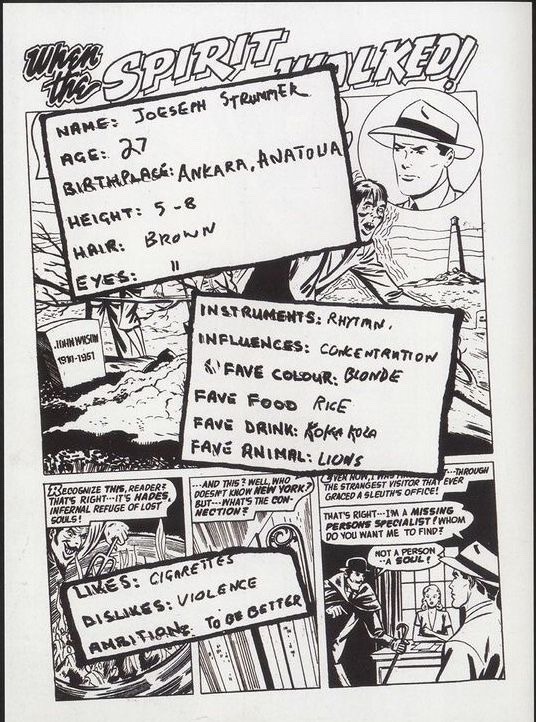 When
the SPIRIT WALKED!
NAME: JOESEPH STRUMMER
AGE: 27
BIRTHPLACE: ANKARA, ANATOLIA
HEIGHT: 5-8
HAIR: BROWN
EYES: "
JOHN WILSON
1911-1951
INSTRUMENTS: RHYTMN.
INFLUENCES: CONCENTRATION
FAVE COLOUR: BLONDE
FAVE FOOD RICE
FAVE DRINK: KOKA KOLA
FAVE ANIMAL: LIONS
RECOGNIZE THIS, READER?
THAT'S RIGHT--IT'S HADES,
INFERNAL REFUGE OF LOST
SOULS!
...AND THIS? WELL, WHO
DOESN'T KNOW NEW YORK?
BUT---WHAT'S THE CON-
NECTION?
EVEN NOW, I WAS
--THROUGH
THE STRANGEST VISITOR THAT EVER
GRACED A SLEUTH'S OFFICE!
THAT'S RIGHT---I'M A MISSING
PERSONS SPECIALIST! WHOM
DO YOU WANT ME TO FIND?
NOT A PERSON
--A SOUL!
LIKES: CIGARETTES
DISLIKES: VIOLENCE
AMBITION: TO BE BETTER